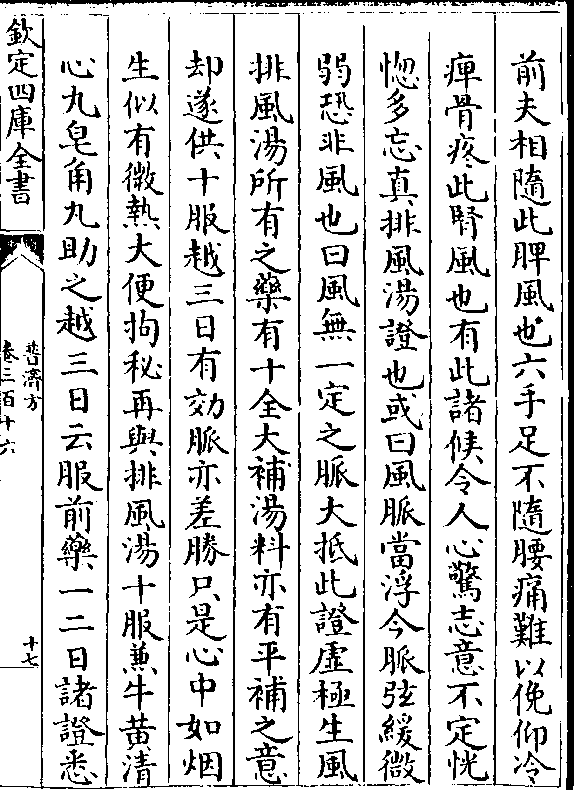 前夫相隨此脾風也六手足不隨腰痛難以俛仰冷
痺骨疼此腎風也有此諸候令人心驚志意不定恍
惚多忘真排風湯證也或曰風脈當浮今脈弦緩微
弱恐非風也曰風無一定之脈大抵此證虛極生風
排風湯所有之藥有十全大補湯料亦有平補之意
却遂供十服越三日有効脈亦差勝只是心中如烟
生似有微熱大便拘秘再與排風湯十服兼牛黃清
心丸皂角丸助之越三日云服前藥一二日諸證悉
欽定四庫全書
普濟方
卷三百十六
十七